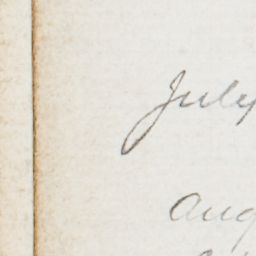 July
Aug